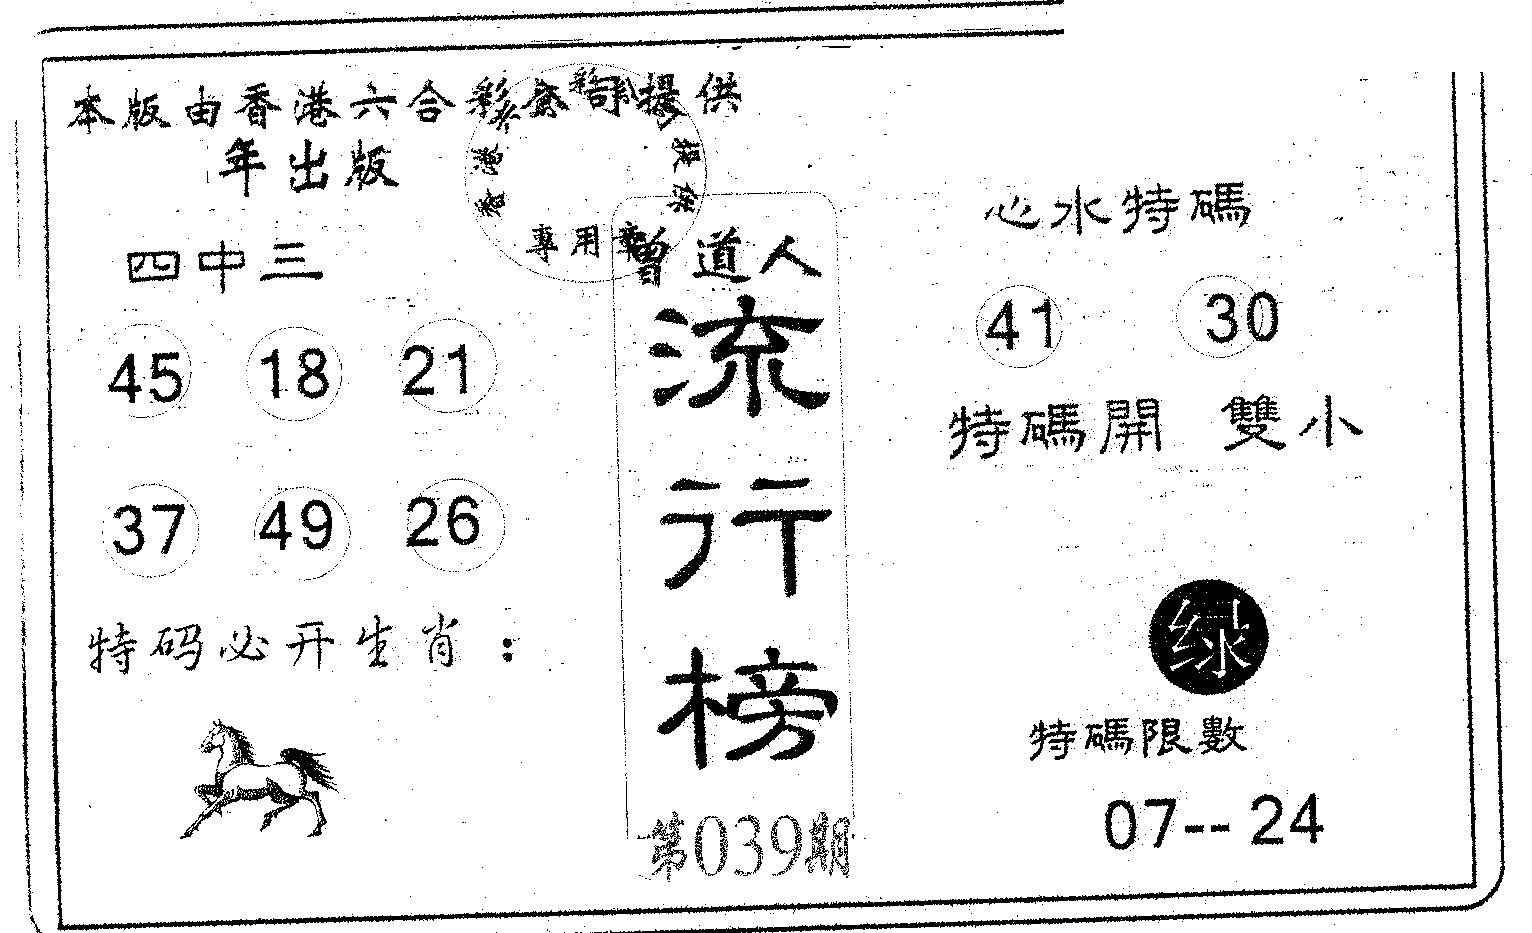 本版由香港六合彩公司提供
年出版
香港六合彩公司提供
專用章
四中三
45 18 21
37 49 26
特码必开生肖：
曾道人
流行榜
第039期
心水特碼
41 30
特碼開 雙小
绿
特碼限數
07--24